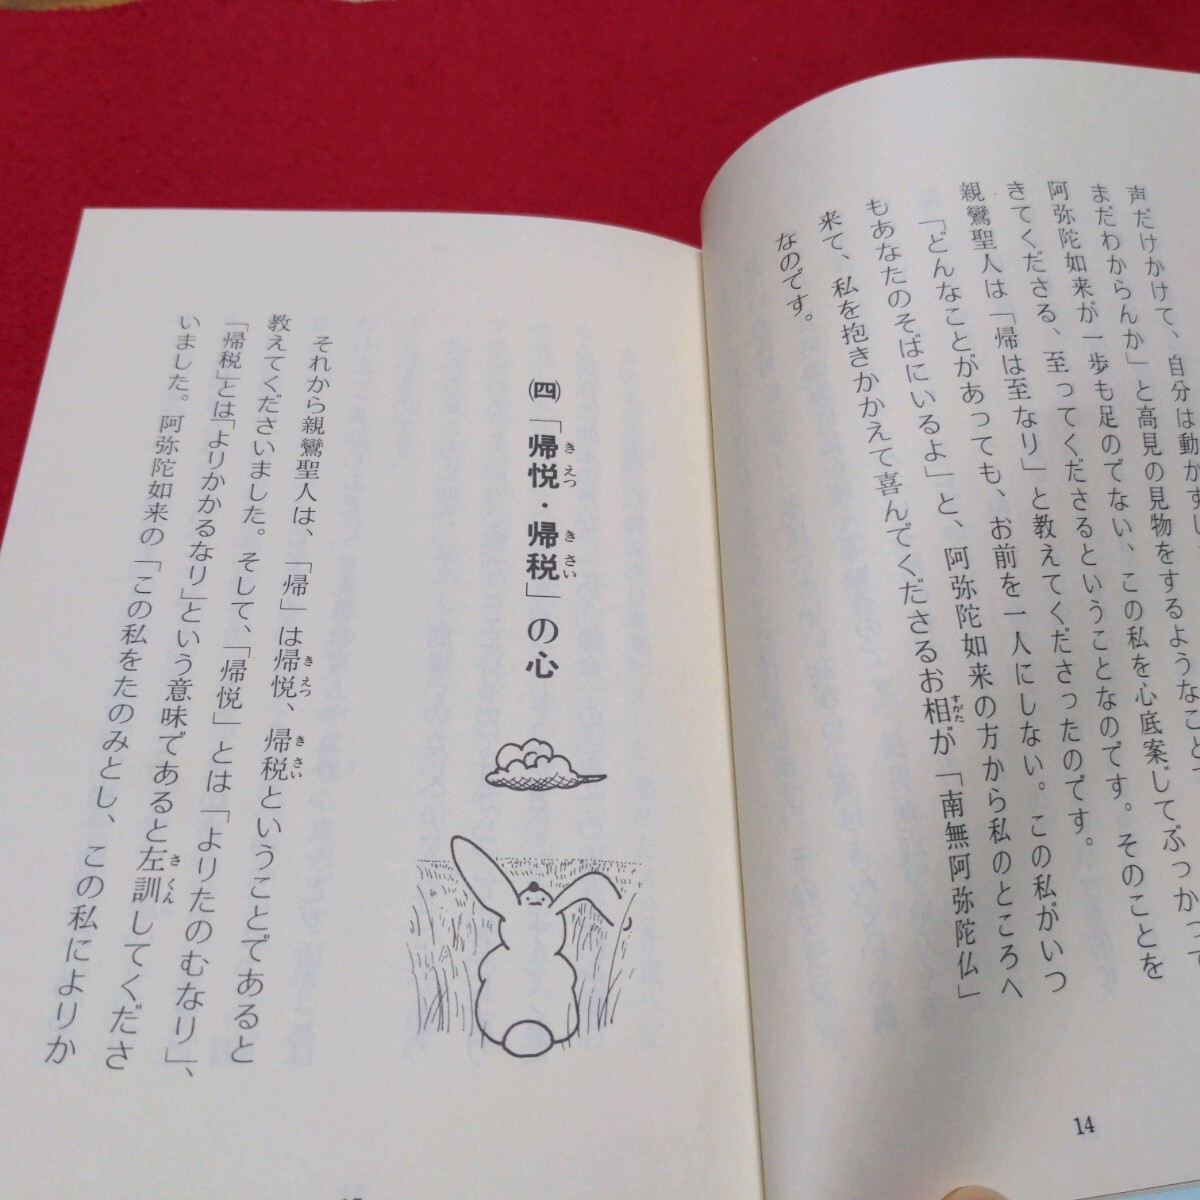 声だけかけて、自分は動かず
まだわからんか」と高見の見物をするようなこと
阿弥陀如来が一歩も足のでない、この私を心底案じてぶっかって
きてくださる、至ってくださるということなのです。そのことを
親鸞聖人は「帰は至なり」と教えてくださったのです。
「どんなことがあっても、お前を一人にしない。この私がいつ
もあなたのそばにいるよ」と、阿弥陀如来の方から私のところへ
来て、私を抱きかかえて喜んでくださるお相が「南無阿弥陀仏」
すがた
なのです。
14
㈣「帰悦・帰税」の心
きえつ
きさい
それから親鸞聖人は、「帰」は帰悦、帰税ということであると
きえつ
きさい
教えてくださいました。そして、「帰悦」とは「よりたのむなり」、
「帰税」とは「よりかかるなり」という意味であると左訓してくださ
さくん
いました。阿弥陀如来の「この私をたのみとし、この私によりか